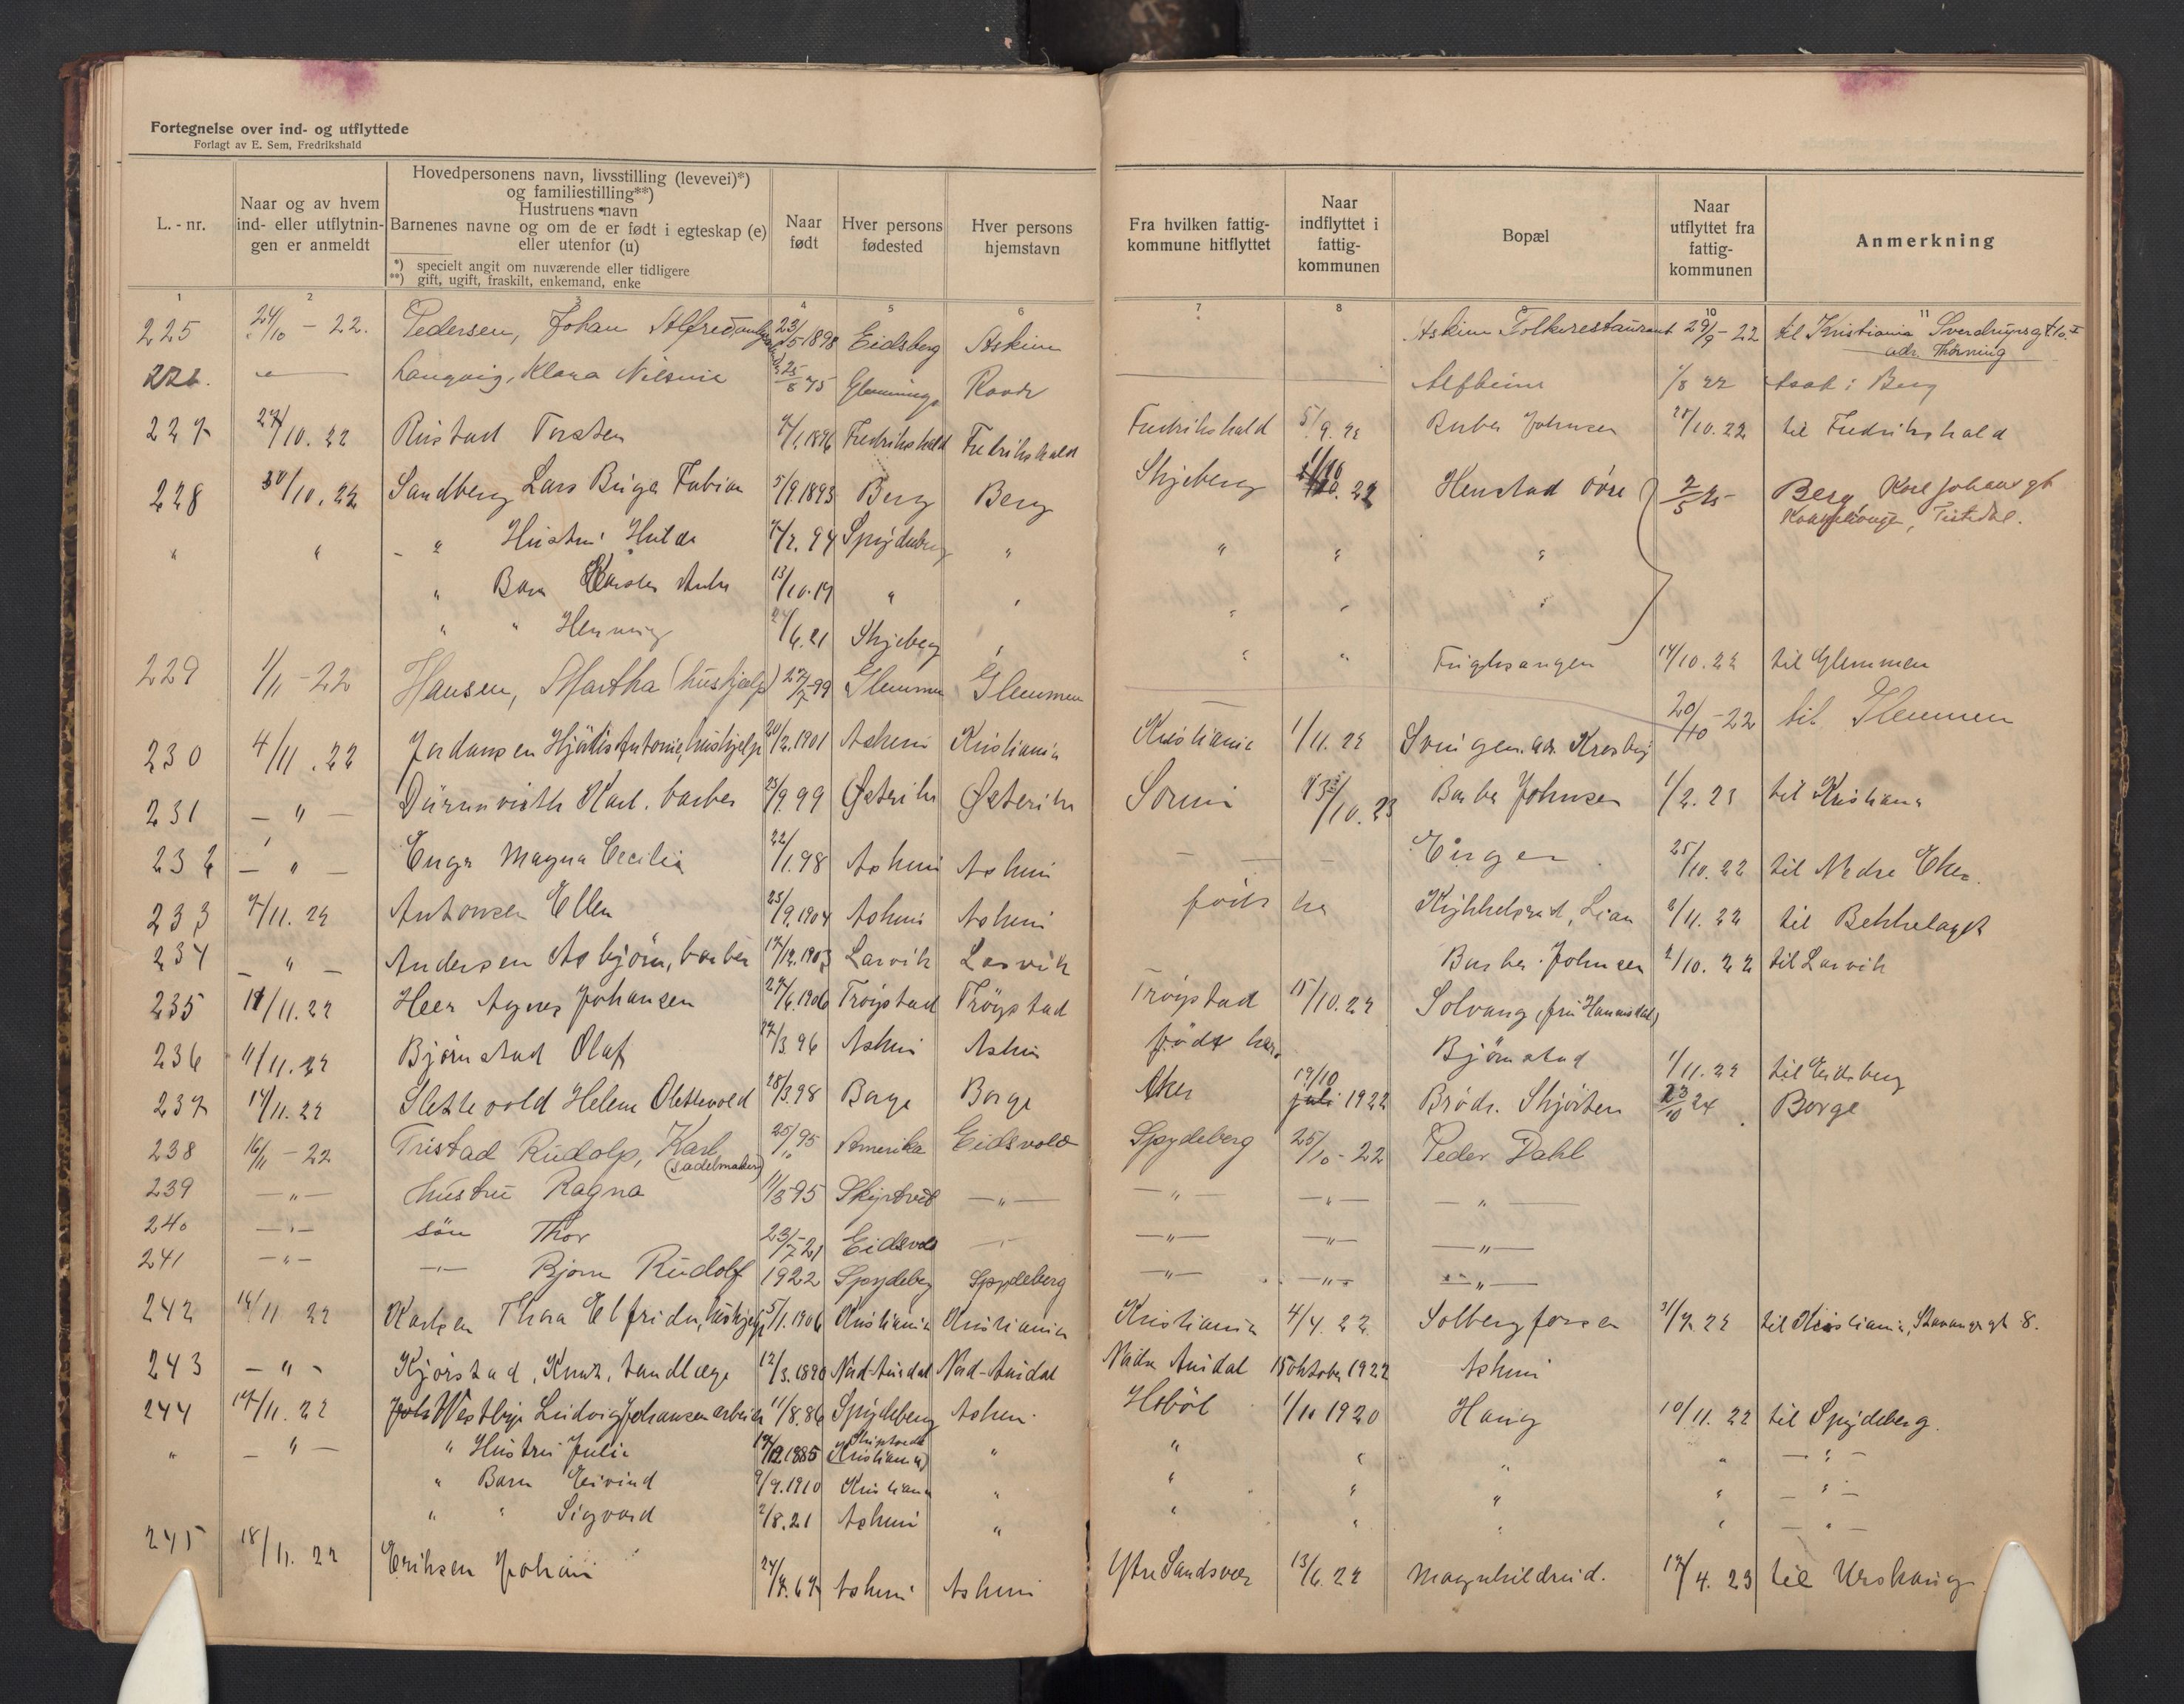 Fortegnelse over ind- og utflyttede
Forlagt av E. Sem, Fredrikshald
L.-nr.
Naar og av hvem ind- eller utflytningen er anmeldt
Hovedpersonens navn, livsstilling (levevei)*)
og familiestilling**)
Hustruens navn
Barnenes navne og om de er født i egteskap (e)
eller utenfor (u)
*) specielt angit om nuværende eller tidligere
**) gift, ugift, fraskilt, enkemand, enke
Naar født
Hver persons fødested
Hver persons hjemstavn
Fra hvilken fattigkommune hitflyttet
Naar indflyttet i fattigkommunen
Bopæl
Naar utflyttet fra fattigkommunen
Anmerkning
1 2 3 4 5 6 7 8 10 11
225 24/10 - 22. Pedersen, Johan Alfred 23/5 1898 Eidsberg Askim Askim Folkerestaurant 29/9 - 22 til Kristiania Sverdrupsgt
adr. Thörning
226. Langvig, Klara Nilsine 25/8 75 Glemminge Raade Alfheim 1/8 22 i Berg
227 27/10. 22 Rustad Torsten 4/1. 1896 Fredrikshald Fredrikshald Fredrikshald 5/9. 22 Barber Johnsen 27/10. 22 til Fredrikshald
228 30/10. 22 Sandberg Lars Birger Fabian 5/9. 1893 Berg Berg Skjeberg 22 Henstad övre 2/5 25 Berg Karl Johansgt
Tistedal.
" " - " Hustru Hulda 7/2. 94 Spydeberg " " " "
" Barn Karsten 13/10. 19 " " " " "
" " Henning 27/6. 21 Skjeberg " " " Fuglesangen 14/10. 22 til Glemmen
229 1/11 - 22 Hansen, Martha (hushjælp) 27/7 - 99 Glemmen Glemmen 20/10 - 22 til Glemmen
230 4/11. 22 Jordansen Hjördis Antonie, hushjelp 20/2. 1901 Askim Kristiania Kristiania 1/11. 22 Svingen. adr. Krosby
231 - " - Karl. barber 23/9. 99 Østerike Østerike 10. 23 Barber Johnsen 1/2. 23 til Kristiania
232 - " - Enger Magna Cecilia 22/1. 98 Askim Askim - - - Enger 25/10. 22 til Nedre Eker.
233 7/11. 22 Antonsen Ellen 25/9. 1904 Askim Askim født her Kykkelsrud, Lian 2/11. 22 til Bekkelaget
234 - " - Andersen Asbjörn, barber 17/12. 1903 Larvik Larvik Barber. Johnsen 2/10. 22 til Larvik
235 11/11. 22 Heer Agnes Johansen 27/6. 1906 Tröystad Tröystad Tröystad 15/10. 22 Solvang
236 11/11. 22 Björnstad Olaf 27/3. 96 Askim Askim født her. Björnstad 1/11. 22 til Eidsberg
237 14/11. 22 Slettevold Helene Olettevold 28/3. 98 Borge Borge Aker 19/10 juli 1922 Brödr. Skjörten 23/10 24. Borge
238 16/11 - 22 Tristad Rudolp, Karl 25/10 95 Amerika Eidsvold Spydeberg 25/10 - 22 Peder Dahl
(sadelmaker)
239 - " - hustru Ragna 11/3 95 Skiptvet - " - - " - - " - - " -
240 - " - sön Thor 23/7 - 21 Eidsvold - " - - " - - " - - " -
241 - " - - " - Bjorn Rudolf 1922 Spydeberg Spydeberg - " - - " - - " -
242 16/11 22 Karlsen Thora Elfrida, hushjelp 5/1. 1906 Kristiania Kristiania Kristiania 4/4. 22. Solbergfossen 31/7. 22 til Kristiania, Stavangergt 8.
243 - " - Kjörstad, Knut, tandlæge 12/3. 1890 Nord-Aurdal Nord-Aurdal Nordre Aurdal 15 oktober 1922 Askim
244 17/11. 22 Westbye Ludvig Johansen arbeider 11/8. 86 Spydeberg Askim. Hobøl 1/10 1920 Haug 10/11. 22 til Spydeberg.
" - " - " Hustru Julie 12. 1885 Skiptvedt (Kristiania) " " " " " - " -
" Barn Eivind 9/9. 1910 Kristiania " " " " " - " -
" " Sigvard 2/8. 21 Askim " " " " " - " -
245 18/11. 22 Eriksen Johan 24/7. 67 Askim Askim Ytre Sandsver 13/6. 22 Magnhildrud. 17/4. 23 til Urskoug